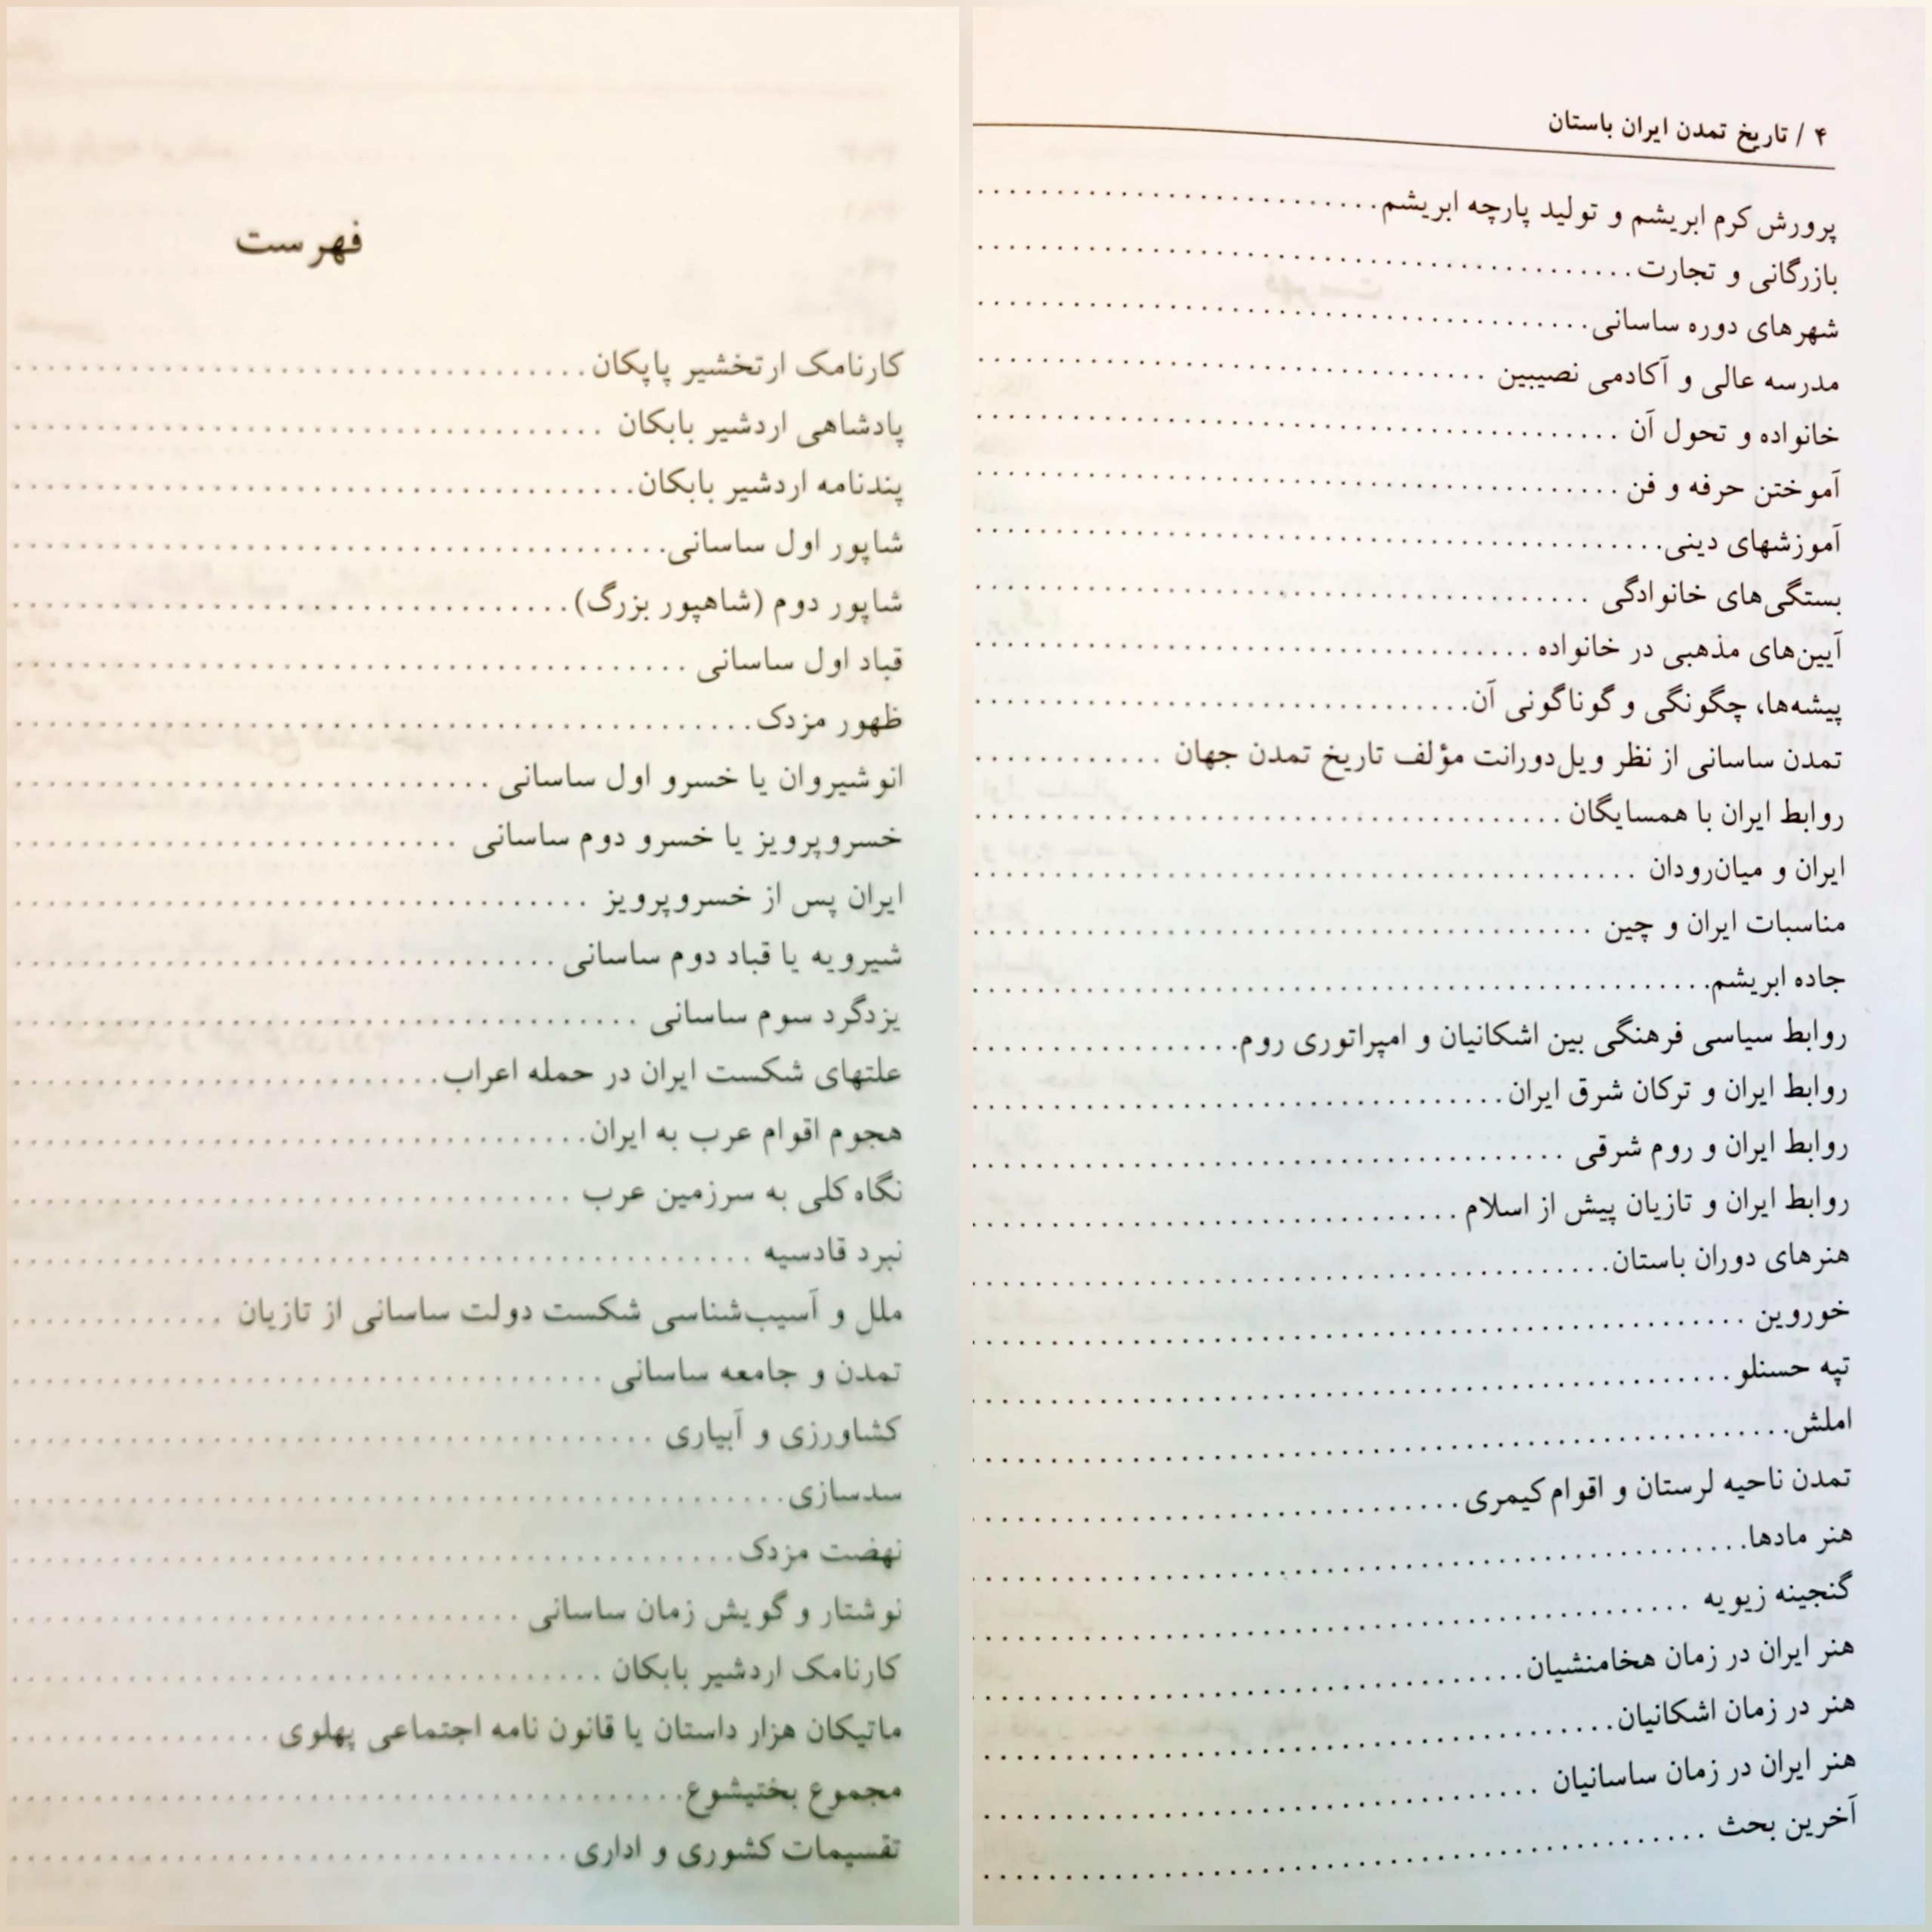 فهرست
کارنامک ارتخشیر پاپکان
پادشاهی اردشیر بابکان
پندنامه اردشیر بابکان
شاپور اول ساسانی
شاپور دوم (شاهپور بزرگ)
قباد اول ساسانی
ظهور مزدک
انوشیروان یا خسرو اول ساسانی
خسروپرویز یا خسرو دوم ساسانی
ایران پس از خسروپرویز
شیرویه یا قباد دوم ساسانی
یزدگرد سوم ساسانی
علتهای شکست ایران در حمله اعراب
هجوم اقوام عرب به ایران
نگاه کلی به سرزمین عرب
نبرد قادسیه
ملل و آسیب‌شناسی شکست دولت ساسانی از تازیان
تمدن و جامعه ساسانی
کشاورزی و آبیاری
سدسازی
نهضت مزدک
نوشتار و گویش زمان ساسانی
کارنامک اردشیر بابکان
ماتیکان هزار داستان یا قانون نامه اجتماعی پهلوی
مجموع بختیشوع
تقسیمات کشوری و اداری
۴ / تاریخ تمدن ایران باستان
پرورش کرم ابریشم و تولید پارچه ابریشم
بازرگانی و تجارت
شهرهای دوره ساسانی
مدرسه عالی و آکادمی نصیبین
خانواده و تحول آن
آموختن حرفه و فن
آموزشهای دینی
بستگی‌های خانوادگی
آیین‌های مذهبی در خانواده
پیشه‌ها، چگونگی و گوناگونی آن
تمدن ساسانی از نظر ویل‌دورانت مؤلف تاریخ تمدن جهان
روابط ایران با همسایگان
ایران و میان‌رودان
مناسبات ایران و چین
جاده ابریشم
روابط سیاسی فرهنگی بین اشکانیان و امپراتوری روم
روابط ایران و ترکان شرق ایران
روابط ایران و روم شرقی
روابط ایران و تازیان پیش از اسلام
هنرهای دوران باستان
خوروین
تپه حسنلو
املش
تمدن ناحیه لرستان و اقوام کیمری
هنر مادها
گنجینه زیویه
هنر ایران در زمان هخامنشیان
هنر در زمان اشکانیان
هنر ایران در زمان ساسانیان
آخرین بحث